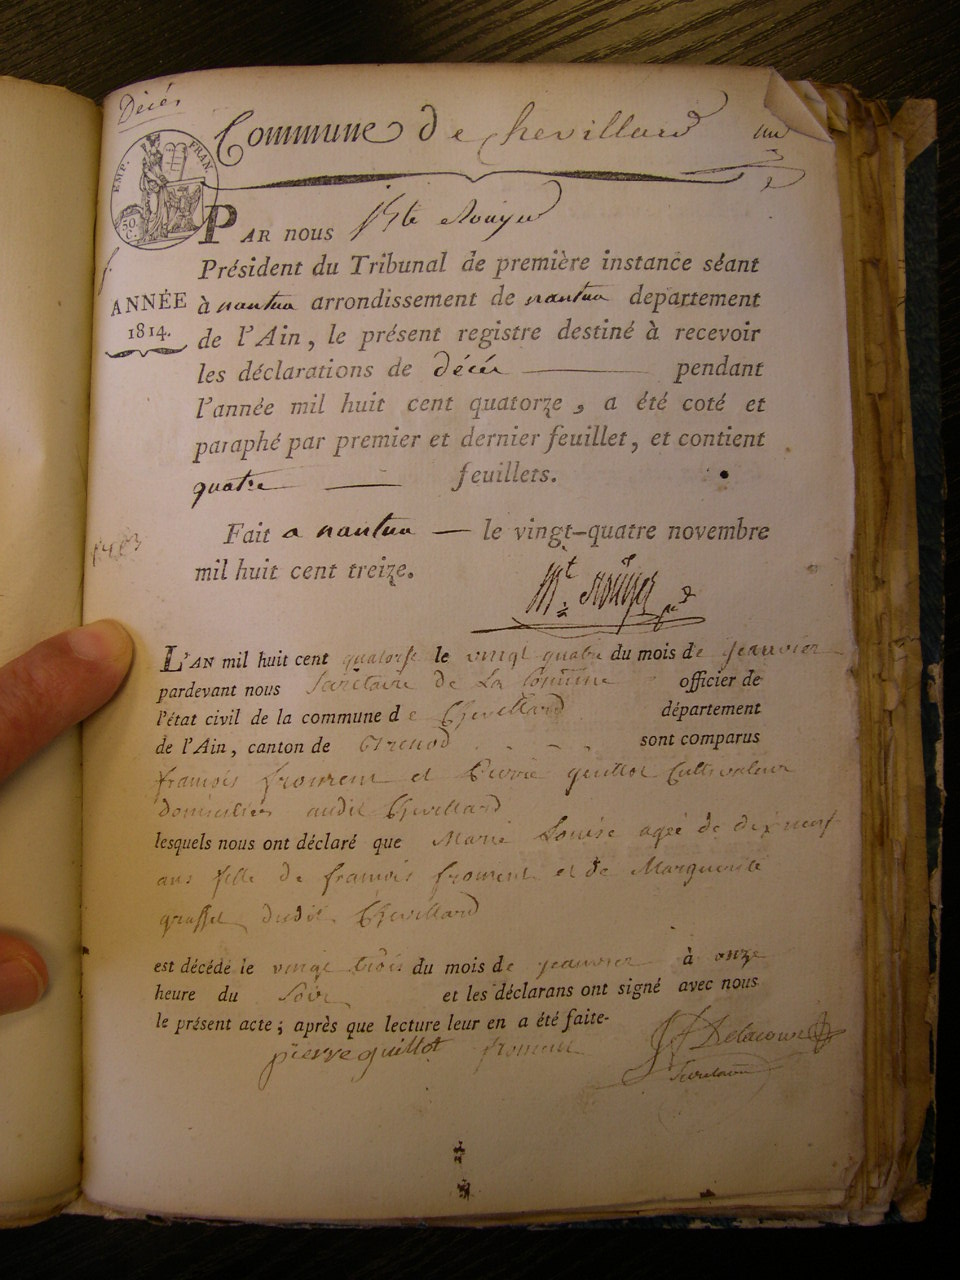 Décés
Commune de Chevillard un
EMP. FRAN.
50. C.
PAR nous
Président du Tribunal de première instance séant
ANNÉE
1814.
à nantua arrondissement de nantua departement
de l'Ain, le présent registre destiné à recevoir
les déclarations de décés pendant
l'année mil huit cent quatorze, a été coté et
paraphé par premier et dernier feuillet, et contient
quatre feuillets.
Fait a nantua — le vingt-quatre novembre
mil huit cent treize.
L'AN mil huit cent quatorse le vingt quatre du mois de jeanvier
pardevant nous Secretaire de La Commune officier de
l'état civil de la commune de Chevillard département
de l'Ain, canton de Brenod sont comparus
francois froment et Pierre guillot Cultivateur
domiciliés audit Chevillard
lesquels nous ont déclaré que Marie Louise agée de dix neuf
ans fille de francois froment et de Marguerite
grosset dudit Chevillard
est décédé le vingt trois du mois de jeanvier à onze
heure du Soir et les déclarans ont signé avec nous
le présent acte ; après que lecture leur en a été faite-
pierre guillot froment Delacour
Secretaire